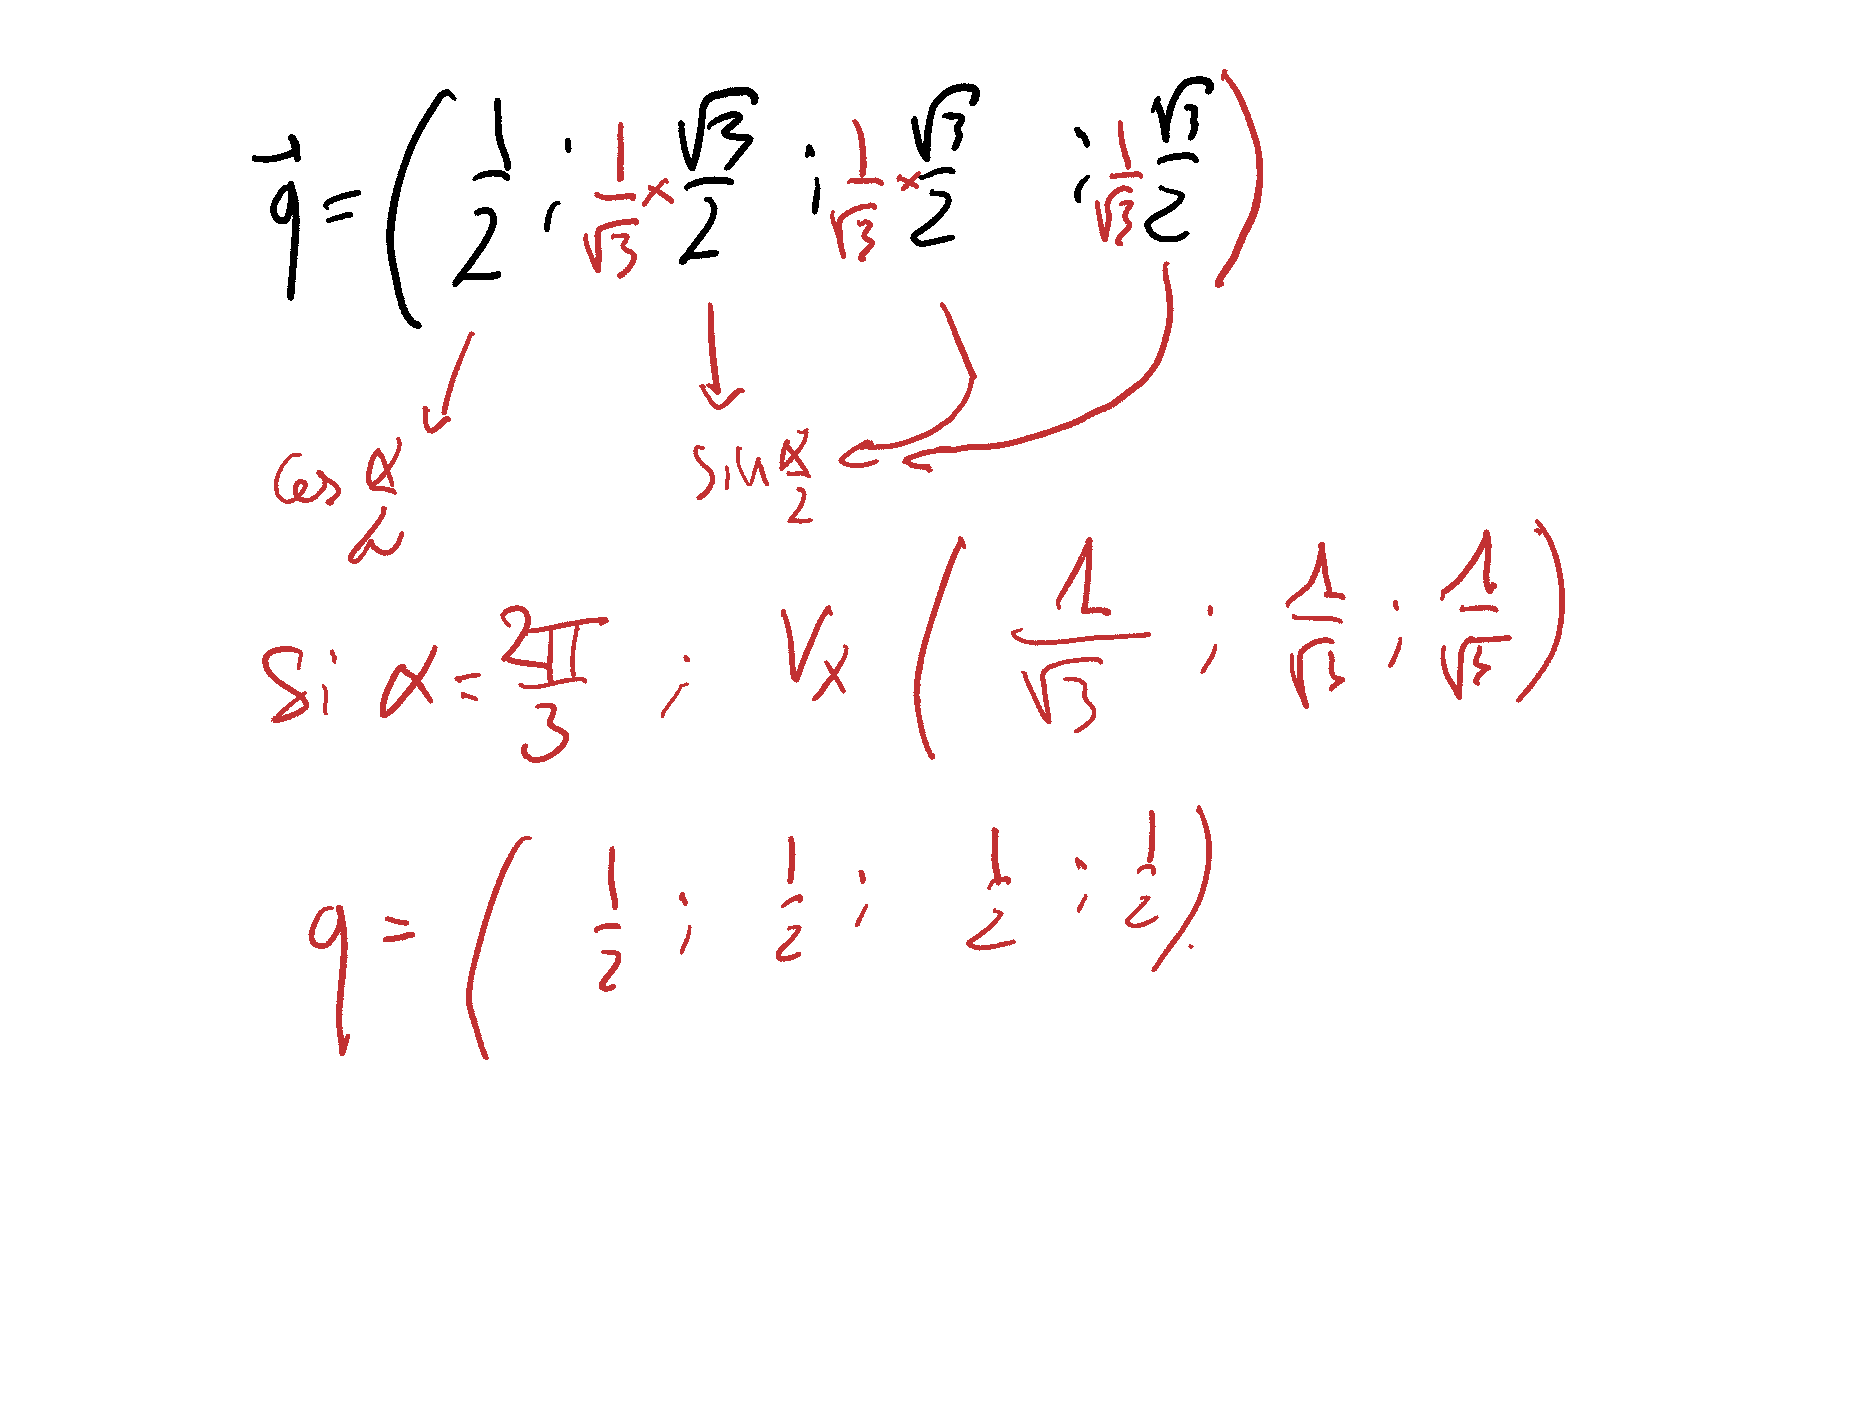 q⃗ = ( 1/2 ; 1/√3 × √3/2 ; 1/√3 × √3/2 ; 1/√3 √3/2 )
cos α/2 sin α/2
Si α = 2π/3 ; Vx ( 1/√3 ; 1/√3 ; 1/√3 )
q = ( 1/2 ; 1/2 ; 1/2 ; 1/2 ).